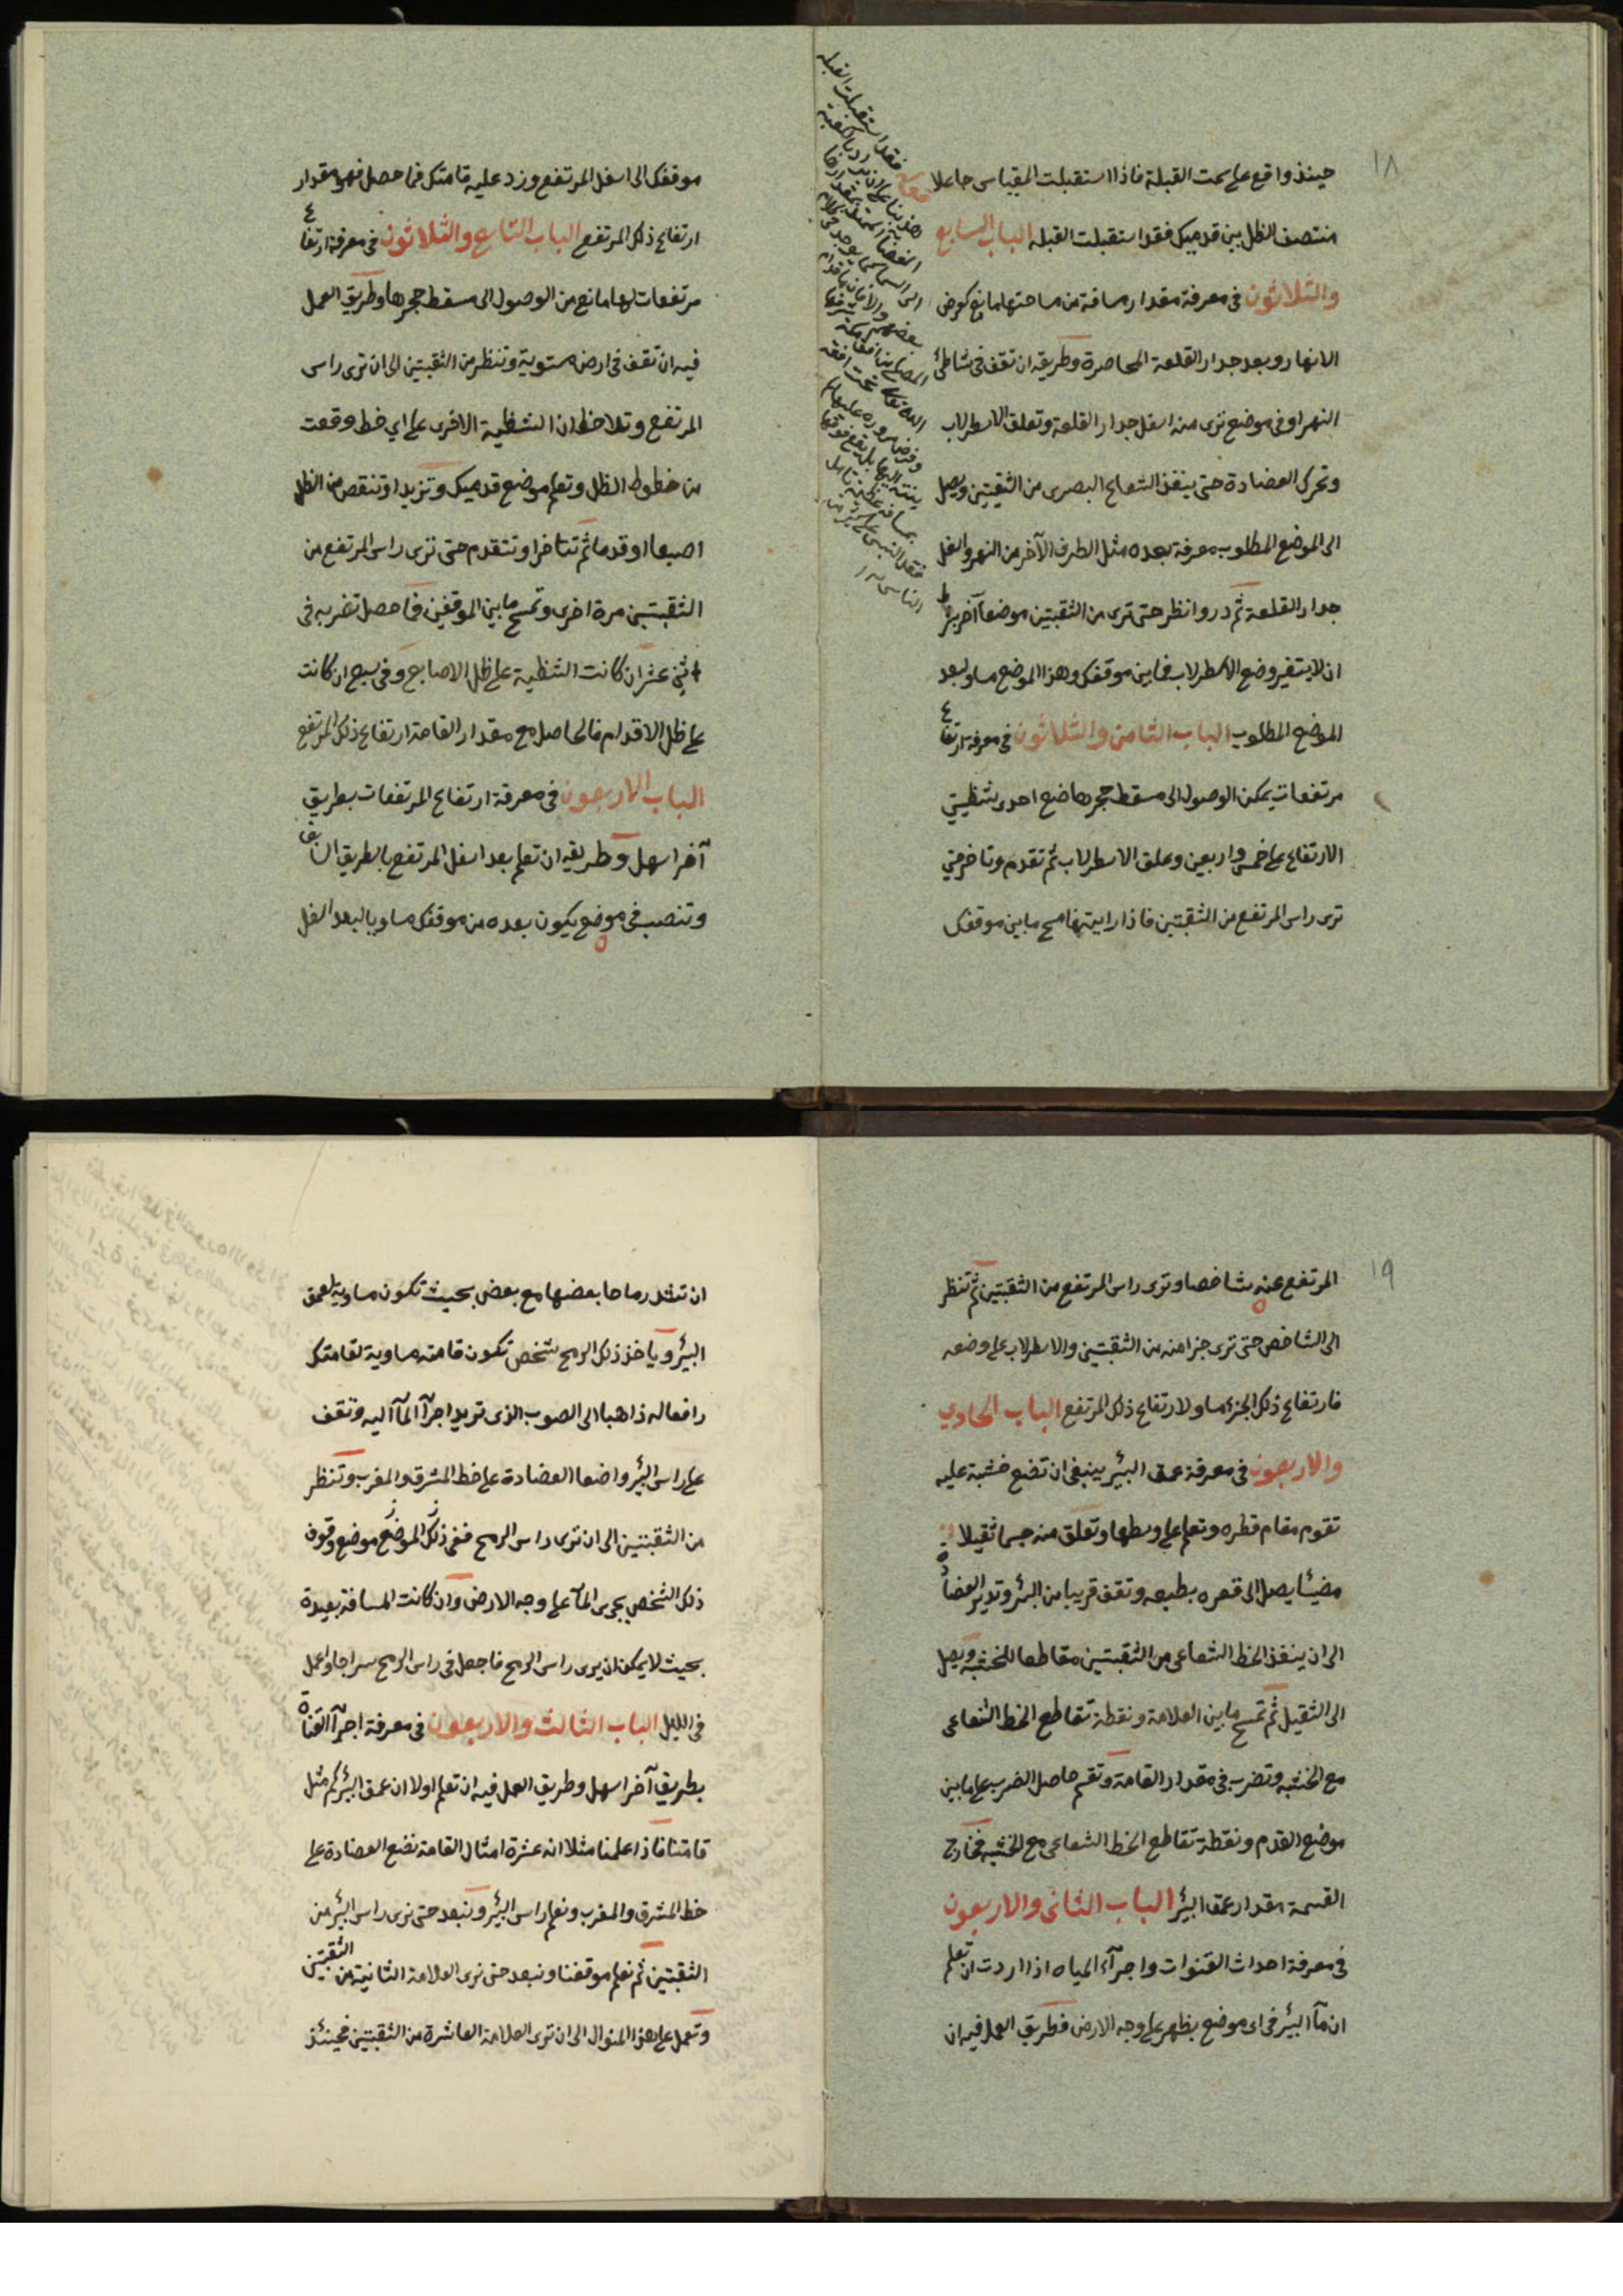 ١٨
حينئذ واقع على سمت القبلة فاذا استقبلت المقياس جاعلا
منتصف الظل بين قدميك فقد استقبلت القبله الباب السابع
والثلاثون فى معرفة مقدار مسافة من مساحتها مانع كعرض
الانهار وبعد جدار القلعة المحاصرة وطريقه ان تقف فى شاطئ
النهر او فى موضع ترى منه اسفل جدار القلعة وتعلق الاسطرلاب
وتحرك العضادة حتى ينفذ الشعاع البصرى من الثقبتين ويصل
الى الموضع المطلوب معرفة بعده مثل الطرف الآخر من النهر واسفل
جدار القلعة ثم در وانظر حتى ترى من الثقبتين موضعا آخر بشرط
ان لا يتغير وضع الاسطرلاب فما بين موقفك وهذا الموضع مساو لبعد
الموضع المطلوب الباب الثامن والثلاثون فى معرفة ارتفاع
مرتفعات يمكن الوصول الى مسقط حجرها ضع احدى شظيتى
الارتفاع على خمس واربعين وعلق الاسطرلاب ثم تقدم وتاخر حتى
ترى راس المرتفع من الثقبتين فاذا رايته فامسح ما بين موقفك
موقفك الى اسفل المرتفع وزد عليه قامتك فما حصل فهو مقدار
ارتفاع ذلك المرتفع الباب التاسع والثلاثون فى معرفة ارتفاع
مرتفعات لها مانع من الوصول الى مسقط حجرها وطريق العمل
فيه ان تقف فى ارض مستوية وتنظر من الثقبتين الى ان ترى راس
المرتفع وتلاحظ ان الشظية الاخرى على اي خط وقعت
من خطوط الظل وتعلم موضع قدميك وتزيد او تنقص من الظل
اصبعا او قدما ثم تتاخر او تتقدم حتى ترى راس المرتفع من
الثقبتين مرة اخرى وتمسح ما بين الموقفين فما حصل تضربه فى
اثنى عشر ان كانت الشظية على ظل الاصابع وفى سبع ان كانت
على ظل الاقدام فالحاصل مع مقدار القامة ارتفاع ذلك المرتفع
الباب الاربعون فى معرفة ارتفاع المرتفعات بطريق
آخر اسهل وطريقه ان تعلم بعد اسفل المرتفع بالطريق السابق
وتنصب فى موضع يكون بعده من موقفك مساويا لبعد اسفل
١٩
المرتفع عنه شاخصا وترى راس المرتفع من الثقبتين ثم تنظر
الى الشاخص حتى ترى جزا منه من الثقبتين والاسطرلاب على وضعه
فارتفاع ذلك الجزء مساو لارتفاع ذلك المرتفع الباب الحادي
والاربعون فى معرفة عمق البئر ينبغى ان تضع خشبة عليه
تقوم مقام قطره وتعلم على وسطها وتعلق منه جسما ثقيلا
مضيئا يصل الى قعره بطبعه وتقف قريبا من البئر وتدير العضادة
الى ان ينفذ الخط الشعاعى من الثقبتين مقاطعا للخشبة ويصل
الى الثقيل ثم تمسح ما بين العلامة ونقطة تقاطع الخط الشعاعى
مع الخشبة وتضربه فى مقدار القامة وتقسم حاصل الضرب على ما بين
موضع القدم ونقطة تقاطع الخط الشعاعى مع الخشبة فخارج
القسمة مقدار عمق البئر الباب الثانى والاربعون
فى معرفة احداث القنوات واجرآء المياه اذا اردت ان تعلم
ان مآ البئر فى اى موضع يظهر على وجه الارض فطريق العمل فيه ان
ان تشد رماحا بعضها مع بعض بحيث تكون مساوية لعمق
البئر وياخذ ذلك الرمح شخص تكون قامته مساوية لقامتك
رافعا له ذاهبا الى الصوب الذى تريد اجرآ المآ اليه وتقف
على راس البئر واضعا العضادة على خط المشرق والمغرب وتنظر
من الثقبتين الى ان ترى راس الرمح ففى ذلك الموضع موضع وقوف
ذلك الشخص يجرى المآ على وجه الارض وان كانت المسافة بعيدة
بحيث لا يمكن ان يرى راس الرمح فاجعل فى راس الرمح سراجا واعمل
فى الليل الباب الثالث والاربعون فى معرفة اجرآ القناة
بطريق آخر اسهل وطريق العمل فيه ان تعلم اولا ان عمق البئر كم مثل
قامتنا فاذا علمنا مثلا انه عشرة امثال القامة نضع العضادة على
خط المشرق والمغرب ونعلم راس البئر ونبعد حتى نرى راس البئر من
الثقبتين ثم نعلم موقفنا ونبعد حتى نرى العلامة الثانية من الثقبتين
ونعمل على هذا المنوال الى ان نرى العلامة العاشرة من الثقبتين فحينئذ